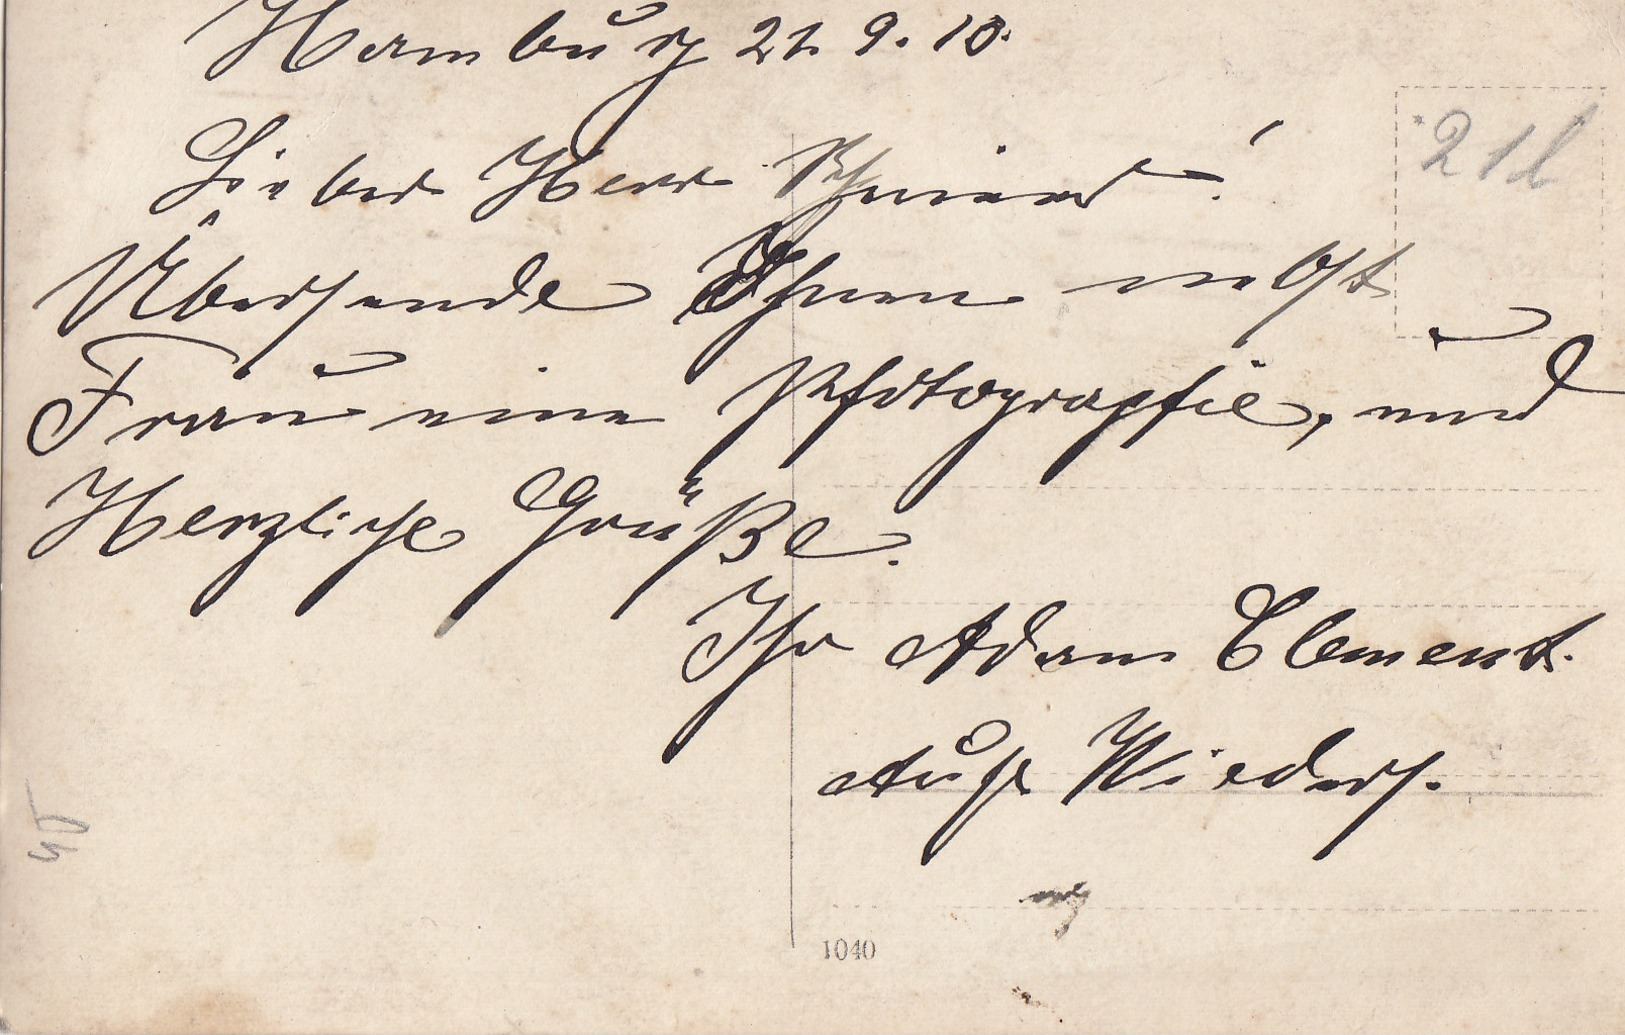 Hamburg 21. 9. 10.
21d
Lieber Herr !
Übersende Ihnen nebst
Frau eine Photographie, und
Herzliche Grüße.
Ihr Adam Clement.
Auf Wieders.
1040